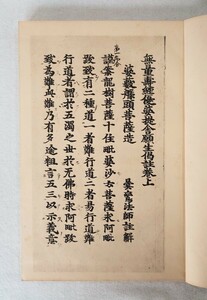 無量壽經優婆提舍願生偈註卷上
婆藪槃頭菩薩造
曇鸞法師註解
謹案龍樹菩薩十住毗婆沙云菩薩求阿毗
跋致有二種道一者難行道二者易行道難
行道者謂於五濁之世於無佛時求阿毗跋
致為難此難乃有多途粗言五三以示義意